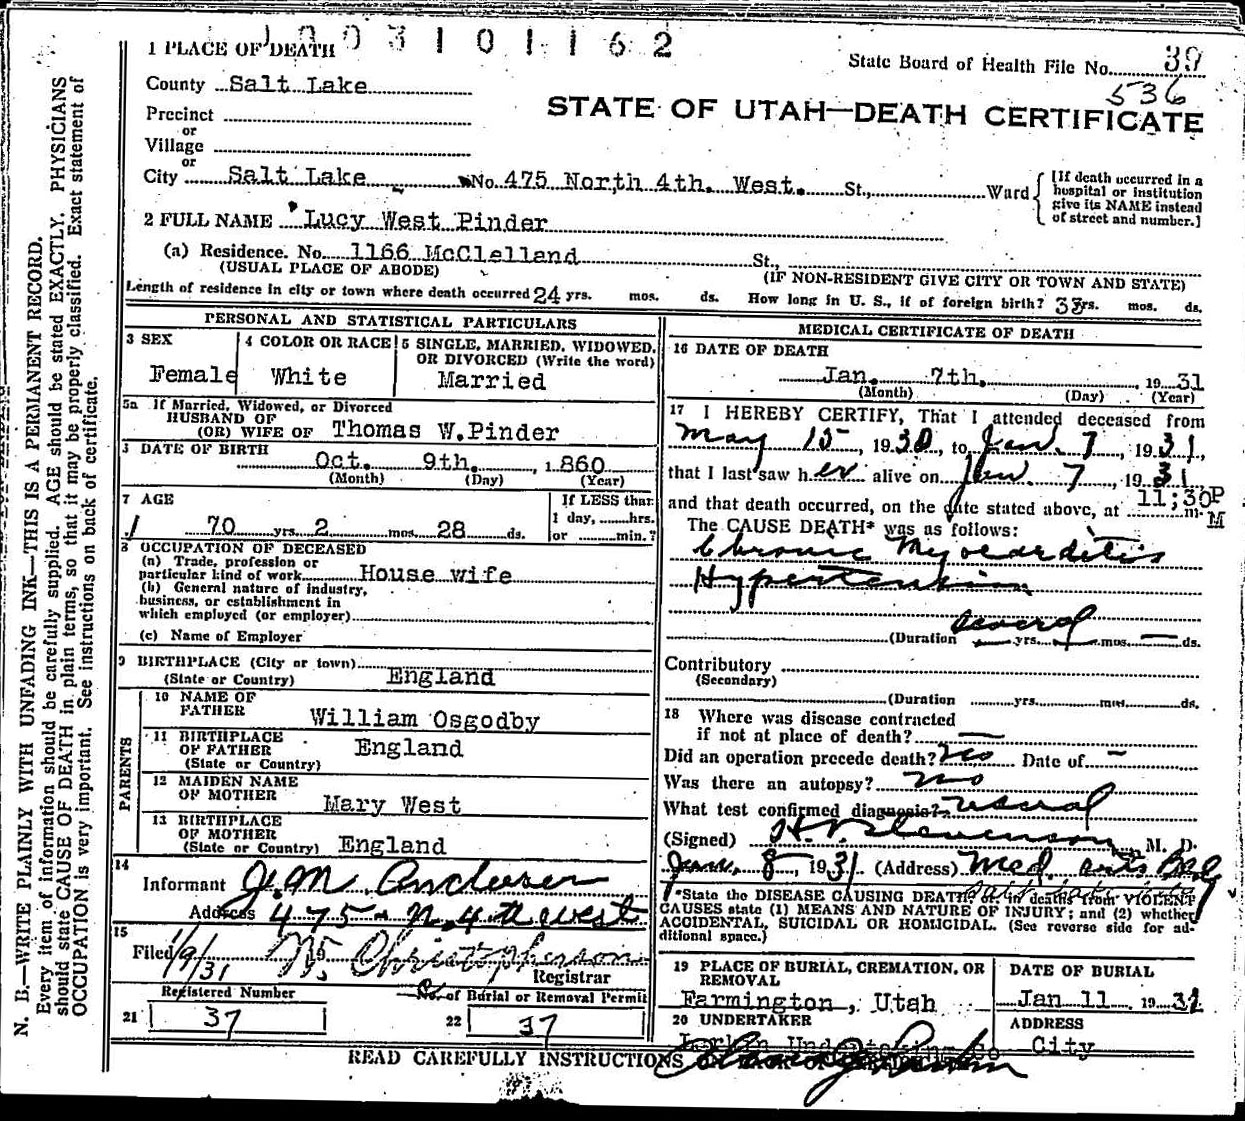 1003101162
1 PLACE OF DEATH
State Board of Health File No. 39
536
County Salt Lake
STATE OF UTAH—DEATH CERTIFICATE
Precinct
or
Village
or
City Salt Lake No. 475 North 4th. West. St., Ward
[If death occurred in a hospital or institution give its NAME instead of street and number.]
2 FULL NAME Lucy West Pinder
(a) Residence. No. 1166 McClelland St.,
(USUAL PLACE OF ABODE) (IF NON-RESIDENT GIVE CITY OR TOWN AND STATE)
Length of residence in city or town where death occurred 24 yrs. mos. ds. How long in U. S., if of foreign birth? 33 yrs. mos. ds.
PERSONAL AND STATISTICAL PARTICULARS
3 SEX
Female
4 COLOR OR RACE
White
5 SINGLE, MARRIED, WIDOWED, OR DIVORCED (Write the word)
Married
5a If Married, Widowed, or Divorced
HUSBAND OF
(OR) WIFE OF Thomas W. Pinder
DATE OF BIRTH
Oct. 9th. , 1860
(Month) (Day) (Year)
7 AGE
70 yrs. 2 mos. 28 ds.
If LESS than
1 day, hrs.
or min.?
8 OCCUPATION OF DECEASED
(a) Trade, profession or
particular kind of work House wife
(b) General nature of industry,
business, or establishment in
which employed (or employer)
(c) Name of Employer
9 BIRTHPLACE (City or town)
(State or Country) England
PARENTS
10 NAME OF
FATHER William Osgodby
11 BIRTHPLACE
OF FATHER England
(State or Country)
12 MAIDEN NAME
OF MOTHER Mary West
13 BIRTHPLACE
OF MOTHER
(State or Country) England
14
Informant J. M. Anderson
Address 475 - N. 4th West
15
Filed 1/9/31 Christopherson
Registrar
Registered Number
21 37
No. of Burial or Removal Permit
22 37
MEDICAL CERTIFICATE OF DEATH
16 DATE OF DEATH
Jan. 7th. , 1931
(Month) (Day) (Year)
17 I HEREBY CERTIFY, That I attended deceased from
May 15, 1930, to Jan. 7, 1931,
that I last saw her alive on Jan. 7, 1931
and that death occurred, on the date stated above, at 11;30P m.
M
The CAUSE DEATH* was as follows:
Chronic Myocarditis
Hypertension
(Duration several yrs. mos. ds.
Contributory
(Secondary)
(Duration yrs. mos. ds.
18 Where was disease contracted
if not at place of death? —
Did an operation precede death? No Date of —
Was there an autopsy? no
What test confirmed diagnosis? usual
(Signed) Stevenson, M. D.
Jan. 8, 1931. (Address) Med. Arts Bldg
Salt Lake
*State the DISEASE CAUSING DEATH, or, in deaths from VIOLENT
CAUSES state (1) MEANS AND NATURE OF INJURY; and (2) whether
ACCIDENTAL, SUICIDAL OR HOMICIDAL. (See reverse side for ad-
ditional space.)
19 PLACE OF BURIAL, CREMATION, OR REMOVAL
Farmington, Utah
DATE OF BURIAL
Jan 11 1931
20 UNDERTAKER
ADDRESS
City
READ CAREFULLY INSTRUCTIONS
N. B.—WRITE PLAINLY WITH UNFADING INK—THIS IS A PERMANENT RECORD.
Every item of information should be carefully supplied. AGE should be stated EXACTLY. PHYSICIANS
should state CAUSE OF DEATH in plain terms, so that it may be properly classified. Exact statement of
OCCUPATION is very important. See instructions on back of certificate.